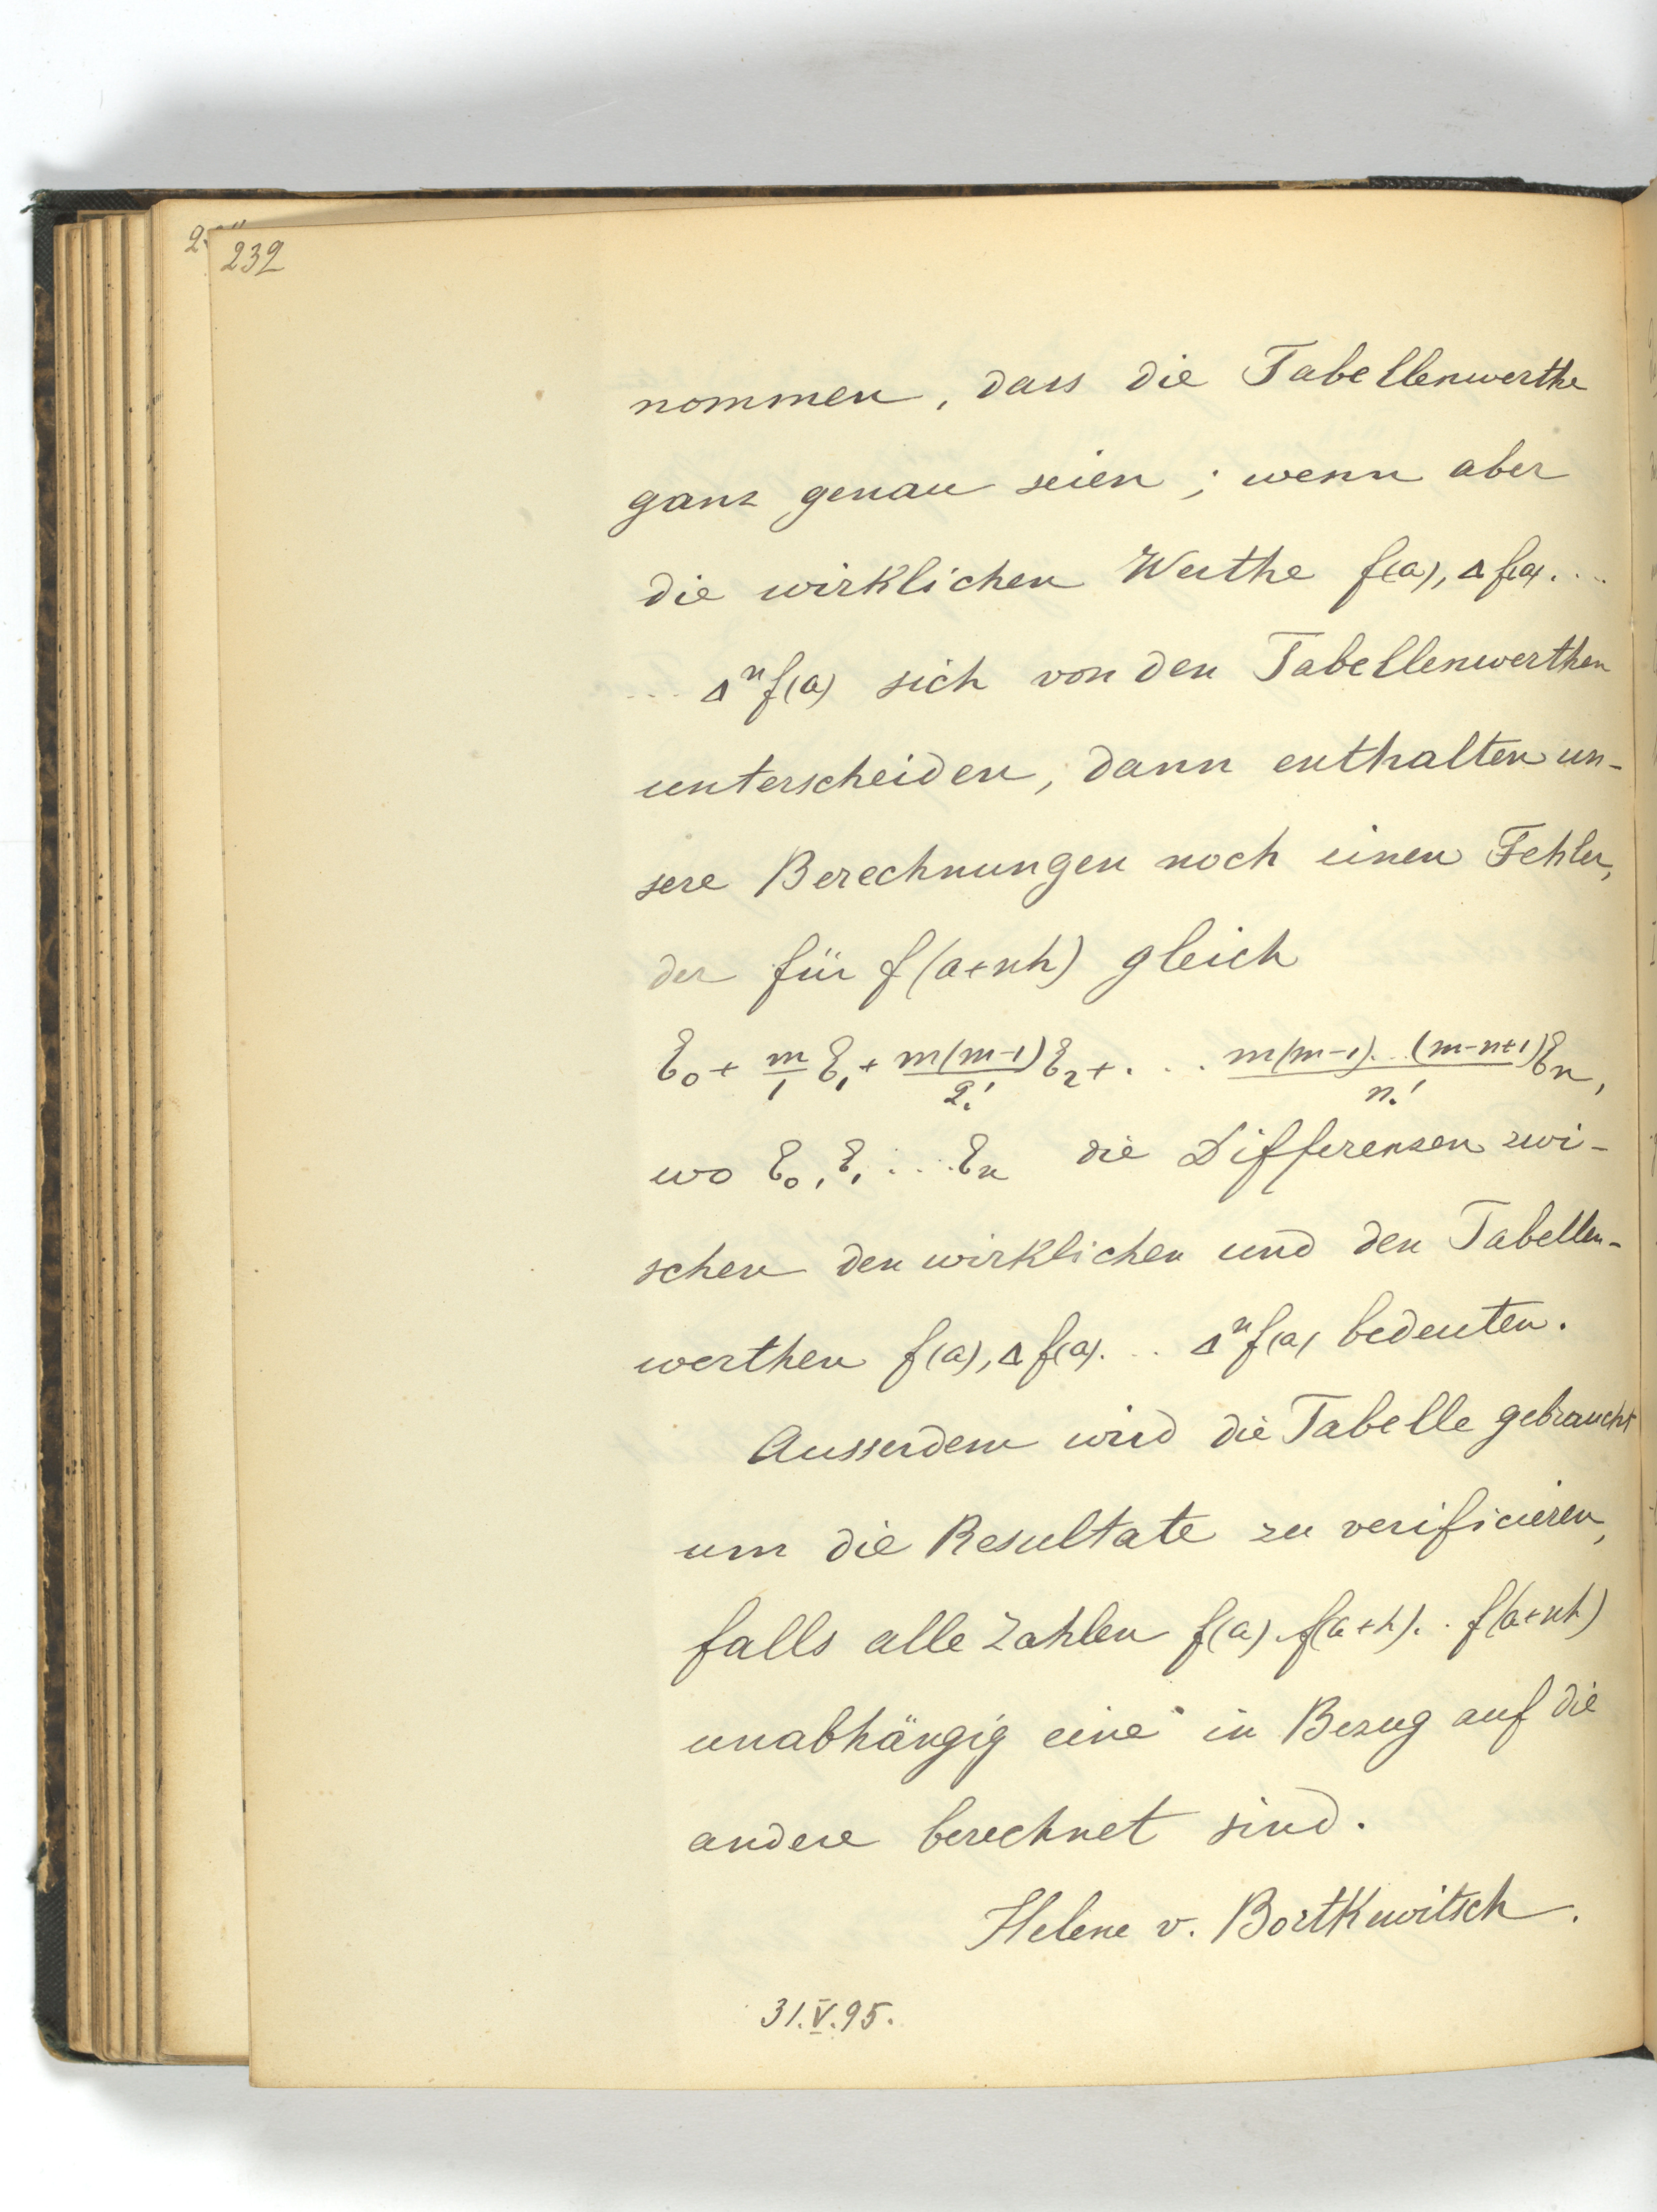 232
nommen, dass die Tabellenwerthe
ganz genau seien; wenn aber
die wirklichen Werthe f(a), Δf(a)....
... Δⁿf(a) sich von den Tabellenwerthen
unterscheiden, dann enthalten un-
sere Berechnungen noch einen Fehler,
der für f(a+nh) gleich
ℰ₀ + m/1 ℰ₁ + m(m-1)/2! ℰ₂ + .... m(m-1)...(m-n+1)/n! ℰₙ,
wo ℰ₀, ℰ₁ .... ℰₙ die Differenzen zwi-
schen den wirklichen und den Tabellen-
werthen f(a), Δf(a)... Δⁿf(a) bedeuten.
Ausserdem wird die Tabelle gebraucht
um die Resultate zu verificieren,
falls alle Zahlen f(a) f(a+h).. f(a+nh)
unabhängig eine in Bezug auf die
andere berechnet sind.
Helene v. Bortkewitsch.
31.V.95.